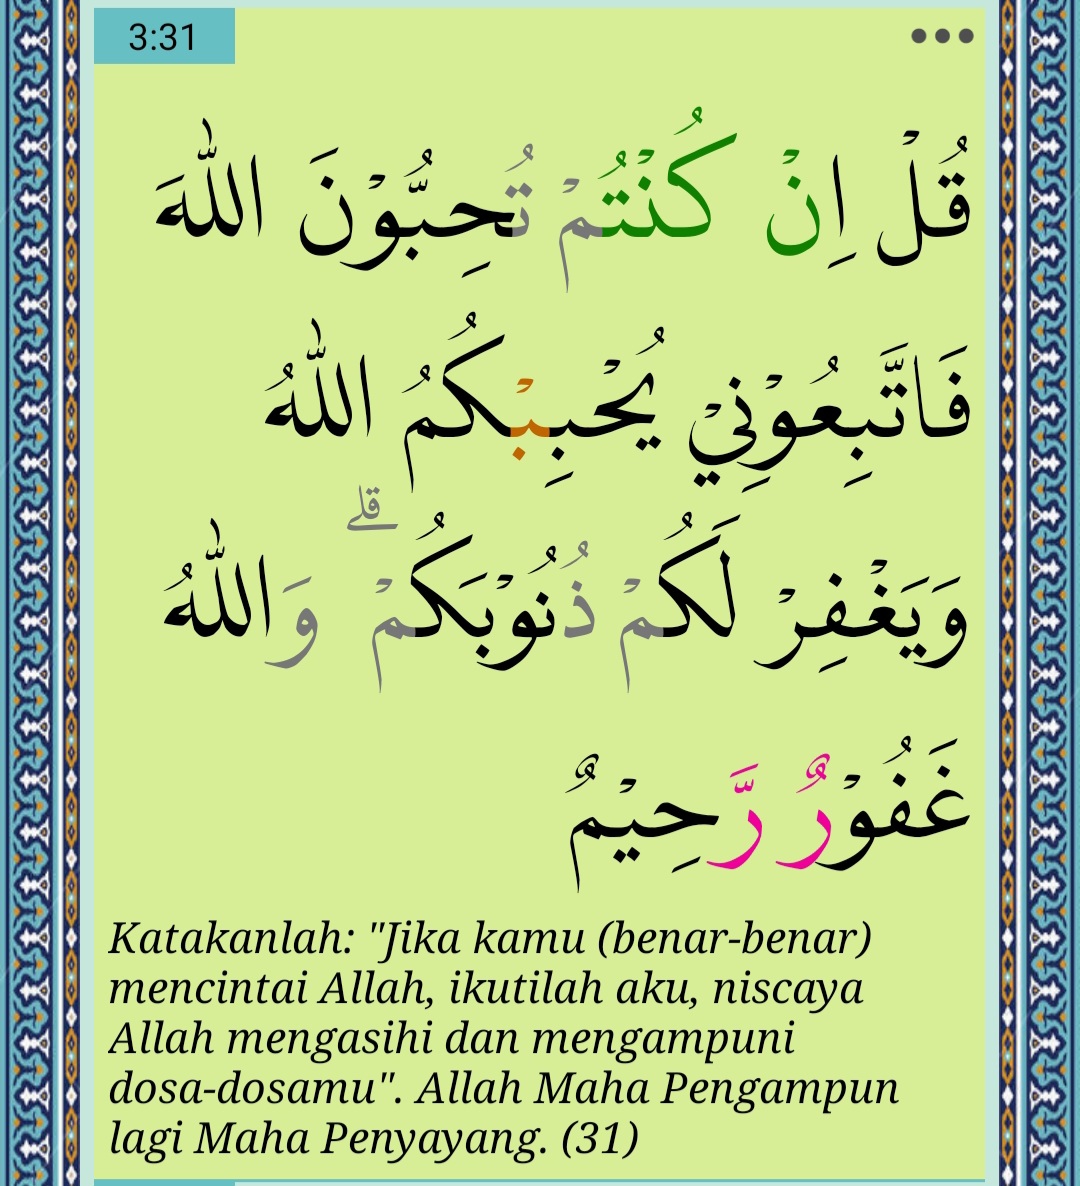 3:31
قُلْ اِنْ كُنْتُمْ تُحِبُّوْنَ اللّٰهَ
فَاتَّبِعُوْنِيْ يُحْبِبْكُمُ اللّٰهُ
وَيَغْفِرْ لَكُمْ ذُنُوْبَكُمْ ۗ وَاللّٰهُ
غَفُوْرٌ رَّحِيْمٌ
Katakanlah: "Jika kamu (benar-benar)
mencintai Allah, ikutilah aku, niscaya
Allah mengasihi dan mengampuni
dosa-dosamu". Allah Maha Pengampun
lagi Maha Penyayang. (31)